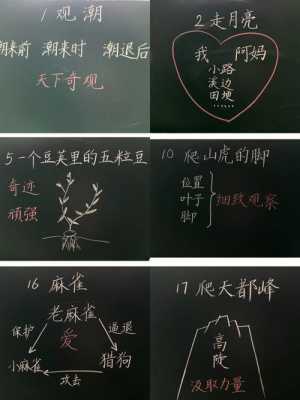 1 观潮
潮来前 潮来时 潮退后
天下奇观
2.走月亮
我 阿妈
小路
溪边
田埂
……
5 一个豆荚里的五粒豆
奇迹
顽强
10 爬山虎的脚
位置
叶子
脚
细致观察
16 麻雀
老麻雀
保护 爱 逼退
小麻雀 猎狗
攻击
17 爬天都峰
高
陡
汲取力量